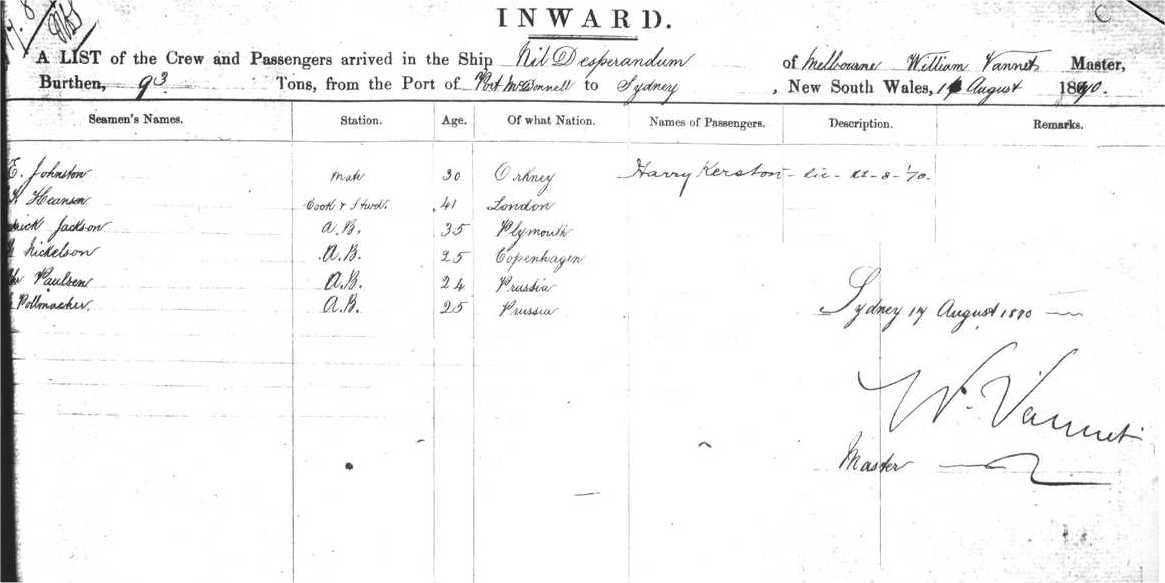 INWARD.
A LIST of the Crew and Passengers arrived in the Ship Nil Desperandum of Melbourne William Vannet Master,
Burthen, 93 Tons, from the Port of Port McDonnell to Sydney, New South Wales, 17 August 1870.
Seamen's Names. Station. Age. Of what Nation. Names of Passengers. Description. Remarks.
E. Johnston Mate 30 Orkney Harry Kerston
Heanson Cook & Stwd. 41 London
Jackson A.B. 35 Plymouth
Nickelson A.B. 25 Copenhagen
Paulsen A.B. 24 Prussia
Pollmacher. A.B. 25 Prussia
Sydney 17 August 1870
W. Vannet
Master